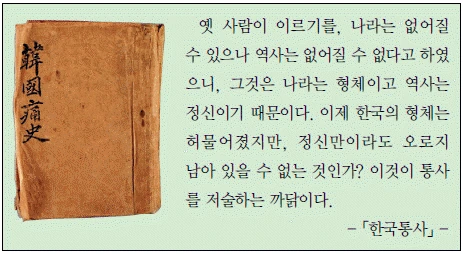 韓國痛史
옛 사람이 이르기를, 나라는 없어질
수 있으나 역사는 없어질 수 없다고 하였
으니, 그것은 나라는 형체이고 역사는
정신이기 때문이다. 이제 한국의 형체는
허물어졌지만, 정신만이라도 오로지
남아 있을 수 없는 것인가? 이것이 통사
를 저술하는 까닭이다.
-「한국통사」-